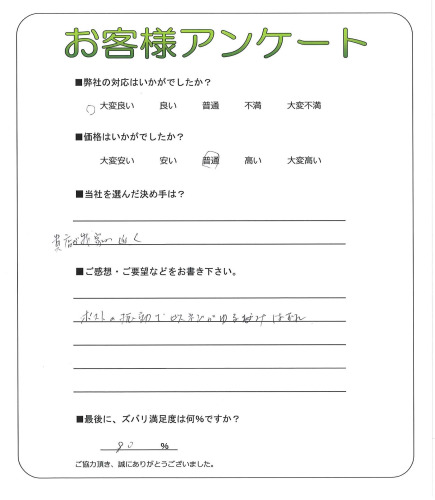 お客様アンケート
■弊社の対応はいかがでしたか?
大変良い 良い 普通 不満 大変不満
■価格はいかがでしたか?
大変安い 安い 普通 高い 大変高い
■当社を選んだ決め手は?
貴店が我家の近く
■ご感想・ご要望などをお書き下さい。
ポストの振動で
■最後に、ズバリ満足度は何%ですか?
90 %
ご協力頂き、誠にありがとうございました。